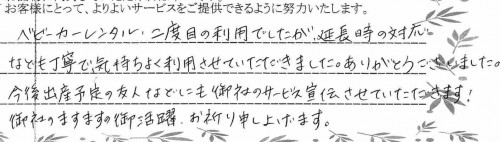 お客様にとって、よりよいサービスをご提供できるように努力いたします。
ベビーカーレンタル、二度目の利用でしたが、延長時の対応
なども丁寧で気持ちよく利用させていただきました。ありがとうございました。
今後出産予定の友人などにも御社のサービス宣伝させていただきます!
御社のますますの御活躍、お祈り申し上げます。